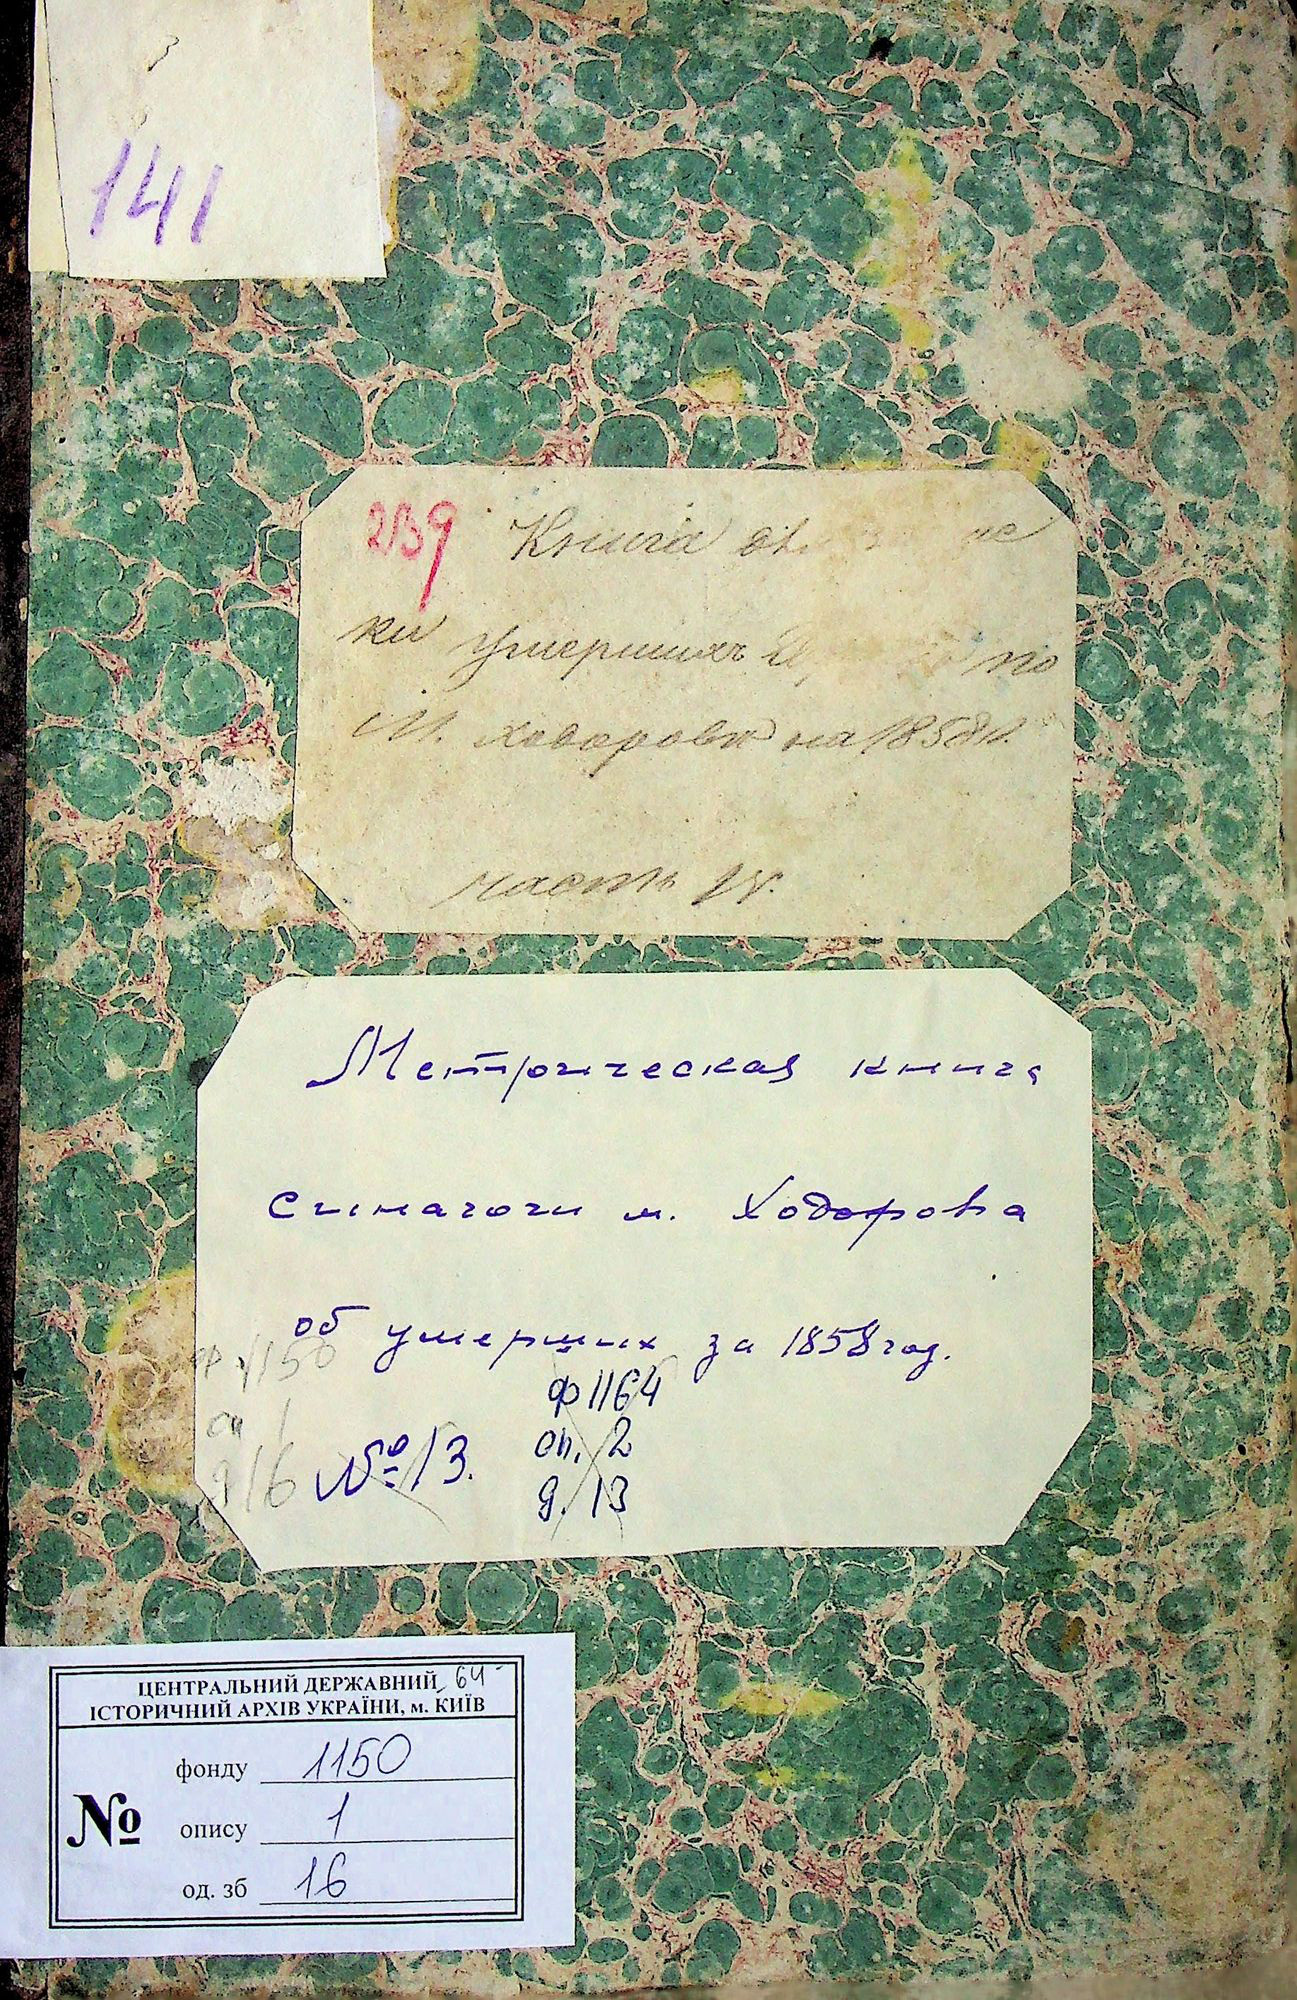 141
239 Книга
ки умершихъ по
М. Ходоровѣ на 1858 г.
часть IV.
Метрическая книга
синагоги м. Ходорова
об умерших за 1858 год.
ф 1150
оп 1
д 16
№ 13.
ф 1164
оп. 2
д. 13
ЦЕНТРАЛЬНИЙ ДЕРЖАВНИЙ 64
ІСТОРИЧНИЙ АРХІВ УКРАЇНИ, м. КИЇВ
№
фонду 1150
опису 1
од. зб 16